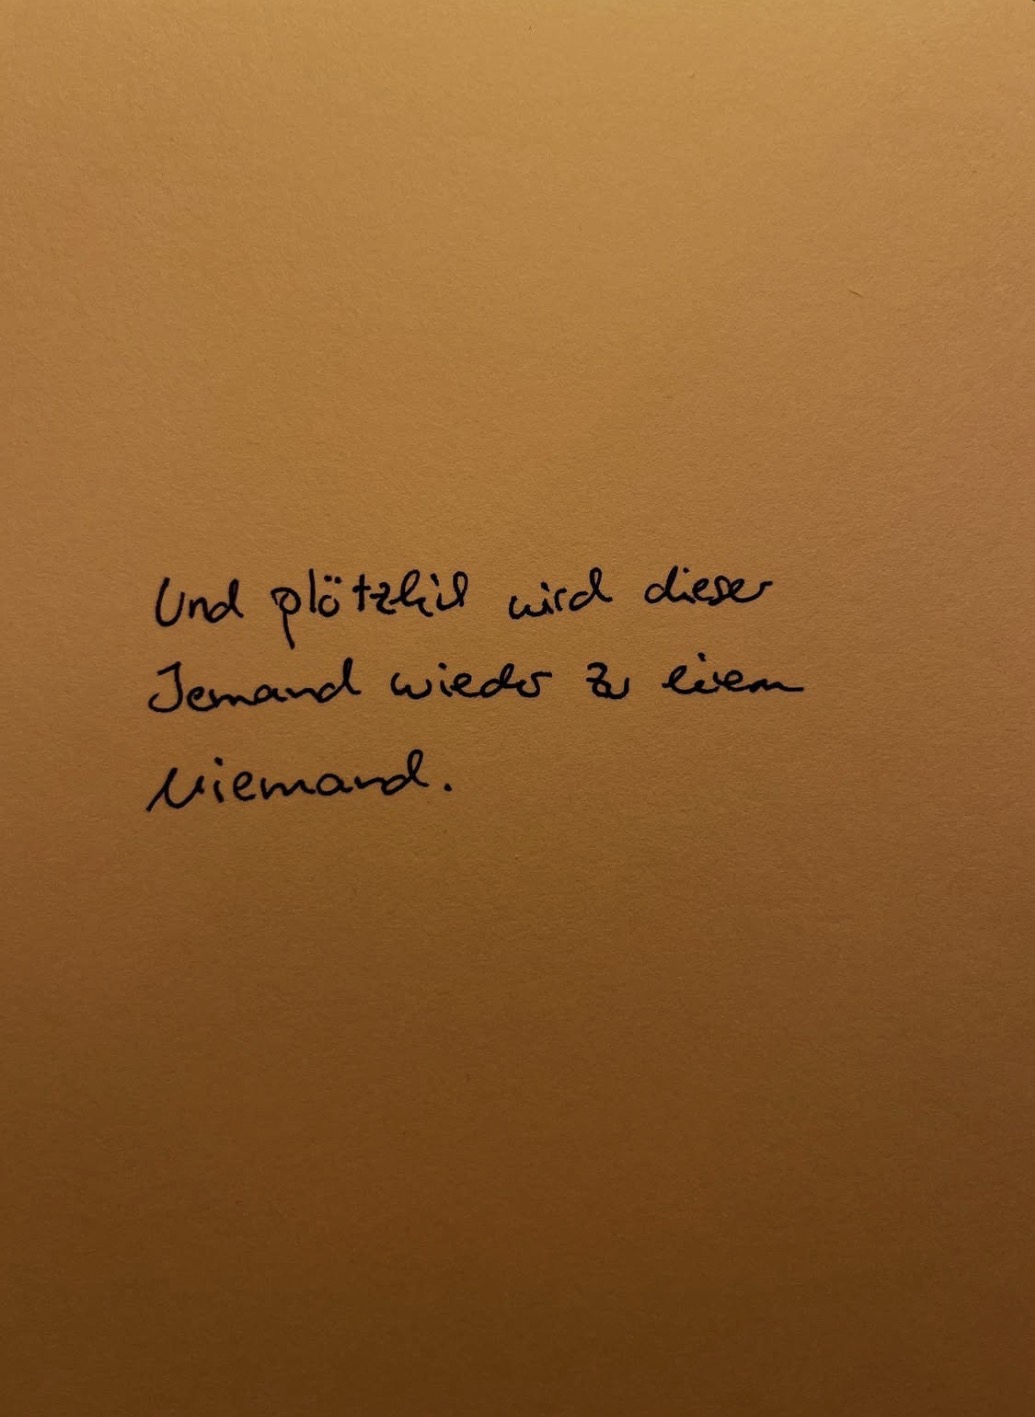 Und plötzlich wird dieser
Jemand wieder zu einem
Niemand.